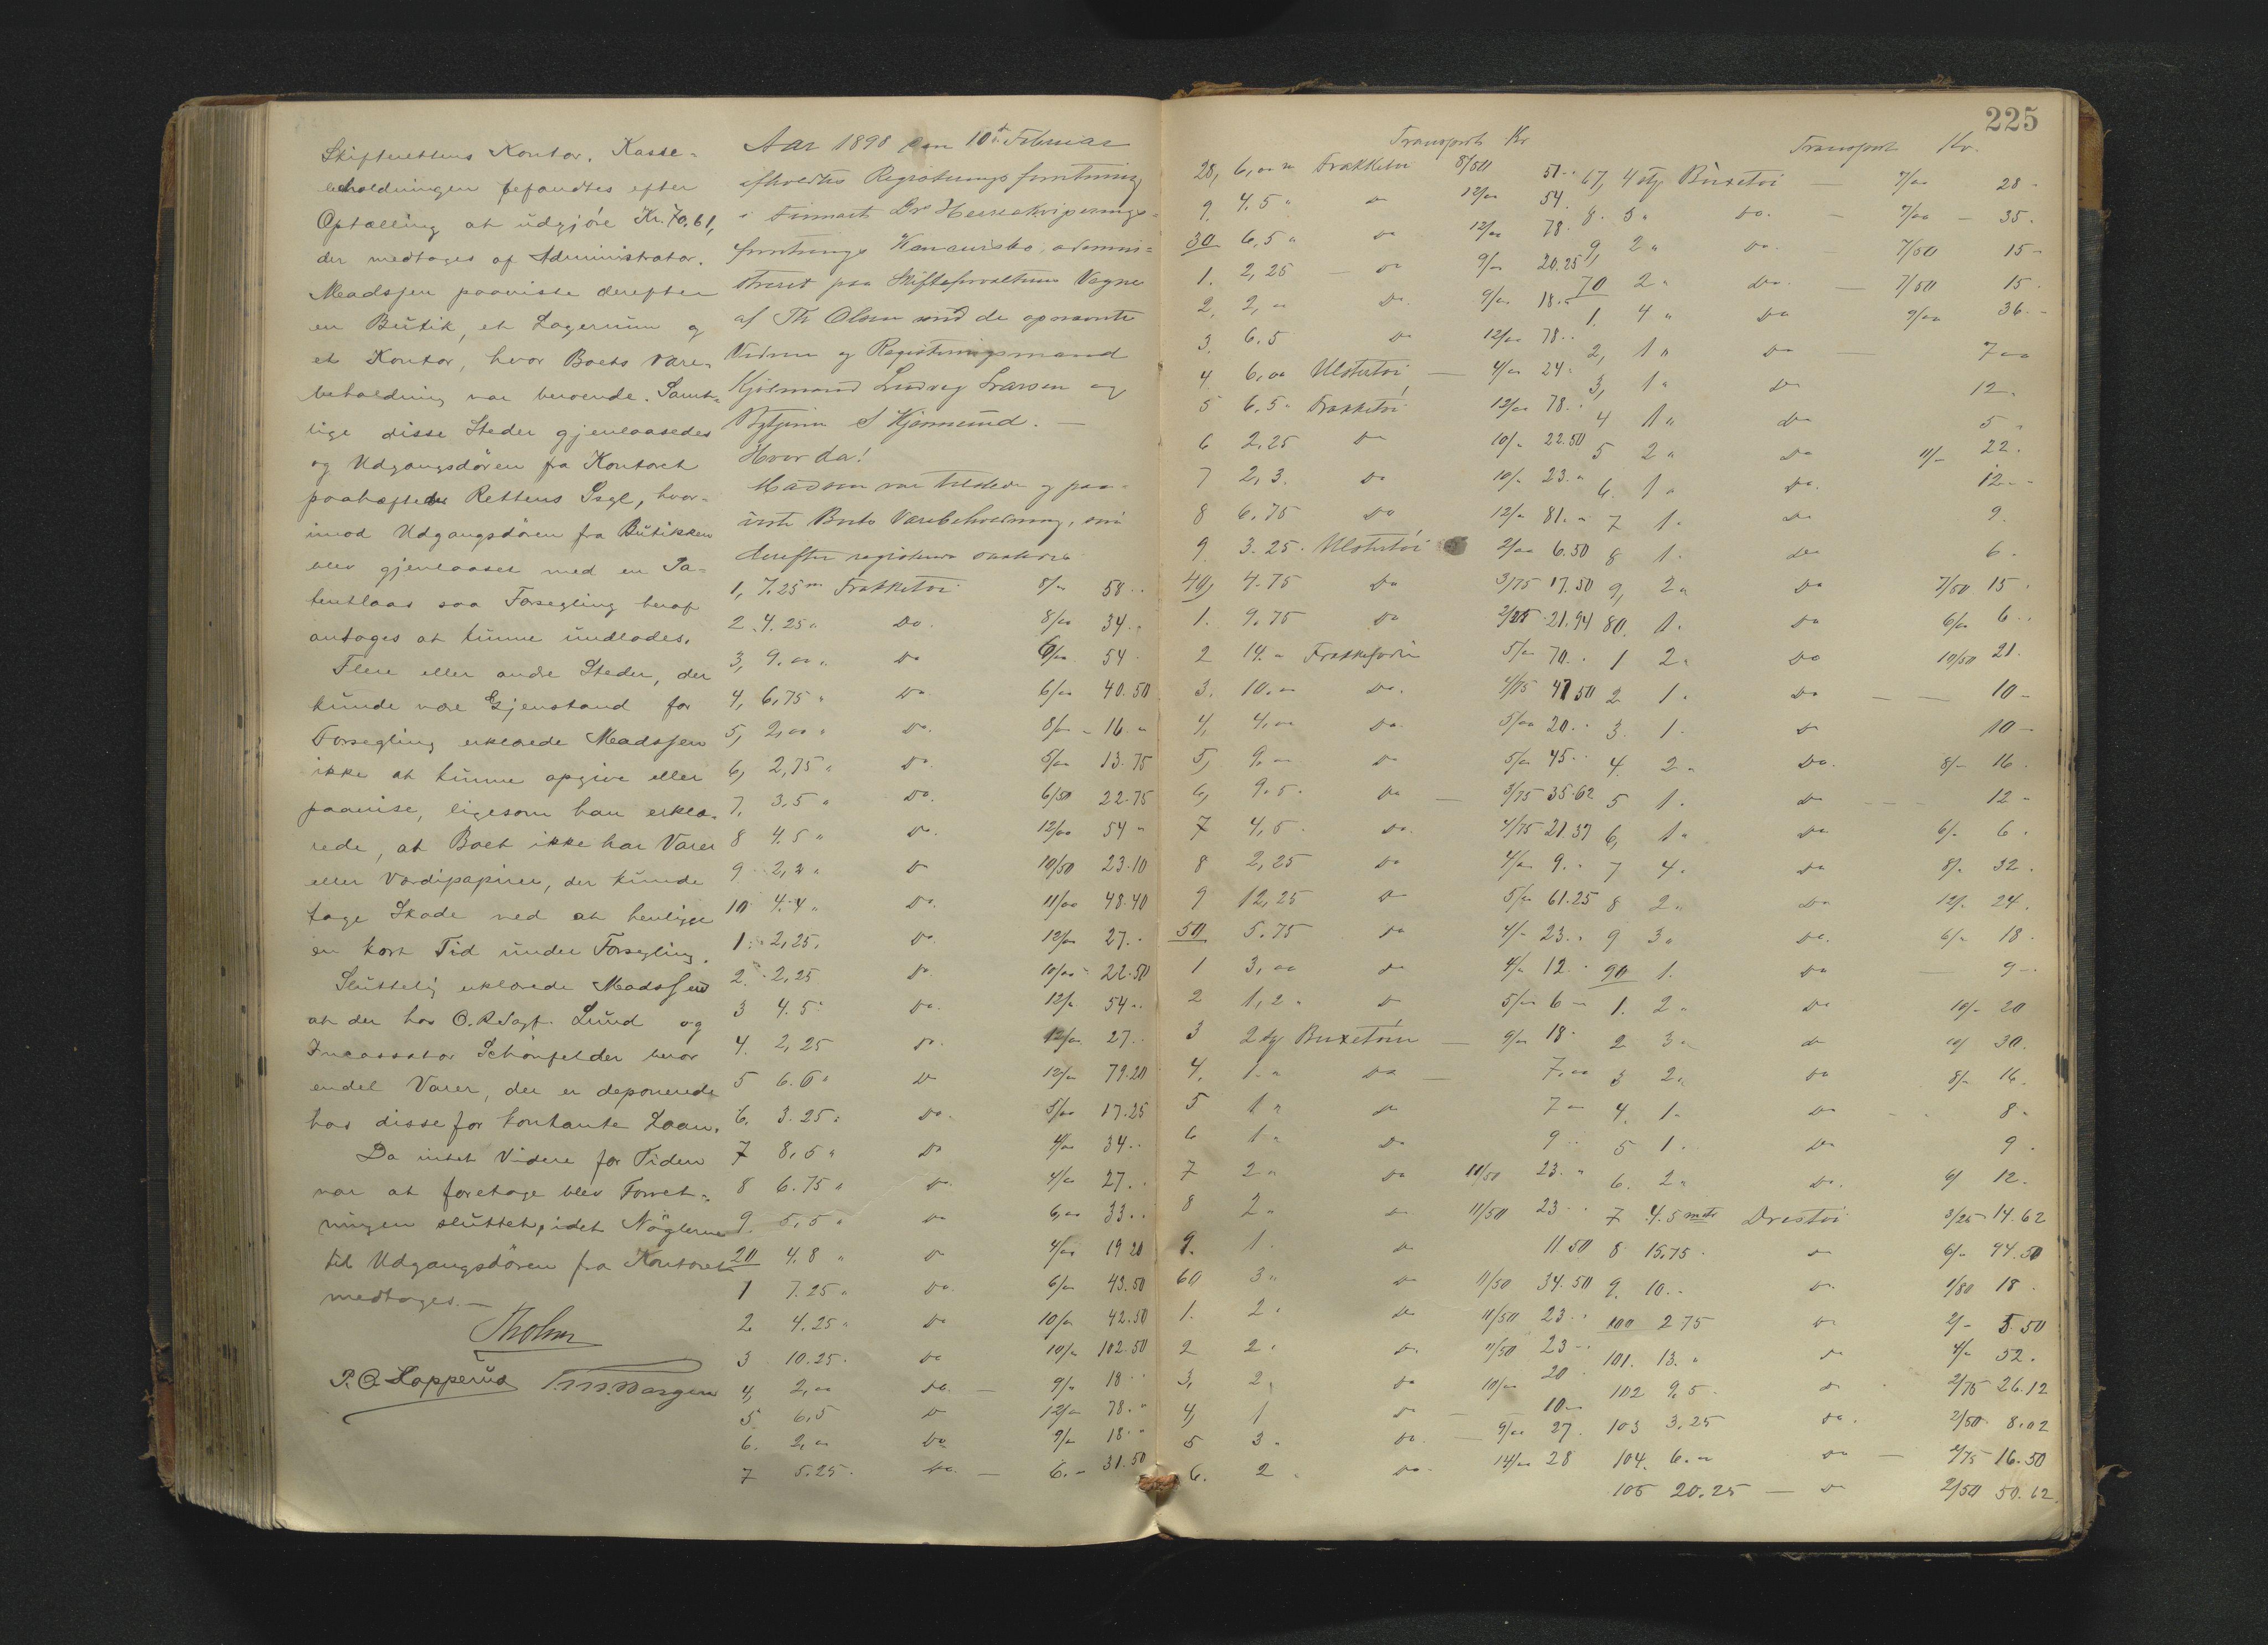 Skifterettens Kontor. Kasse-
beholdningen befandtes efter
Optælling at udgjöre Kr. 70.61,
der medtages af Administrator.
Madssen paaviste derefter
en Butik, et Lagerrum og
et Kontor, hvor Boets Vare-
beholdning var beroende. Samt-
lige disse Steder gjenlaasedes
og Udgangsdören fra Kontoret
paahæftedes Rettens Segl, hvor-
imod Udgangsdören fra Butikken
blev gjenlaaset med en Pa-
tentlaas saa Forsegling heraf
antages at kunne undlades.
Flere eller andre Steder, der
kunde være Gjenstand for
Forsegling erklærede Madssen
ikke at kunne opgive eller
paavise, ligesom han erklæ-
rede, at Boet ikke har Varer
eller Værdipapirer, der kunde
tage Skade ved at henligge
en kort Tid under Forsegling.
Sluttelig erklærede Madssen
at der hos O.R.Sagf. Lund og
Incassator Schönfelder beror
endel Varer, der er deponerede
hos disse for kontante Laan.
Da intet Videre for Tiden
var at foretage blev Forret-
ningen sluttet, idet Nöglerne
til Udgangsdören fra Kontoret
medtages.—
Th Olsen
P.O. Kopperud
Aar 1898 den 10de Februar
afholdtes Registreringsforretning
i Firmaet Herreekviperings-
forretnings Konkursbo, adminis-
treret paa Skifteforvalterens Vegne
af Th Olsen med de opnævnte
Vidner og Registreringsmænd
Kjöbmand Ludvig Larsen og
S Kjernmund.—
Hvor da!
Madsen var tilstede og paa-
viste Boets Varebeholdning, som
derefter registreres saaledes
1, 7.25 m Frakketöi 8/00 58..
2 4.25 " Do. 8/00 34..
3, 9.00 " Do 6/00 54.
4, 6,75 " Do. 6/00 40.50
5, 2,00 " Do. 8/00 - 16.
6, 2,75 " Do. 5/00 13.75
7, 3,5 " Do. 6/50 22.75
8 4.5 " Do. 12/00 54
9 2,2 " Do 10/50 23.10
10 4.4 " Do. 11/00 48.40
1. 2,25. Do. 12/00 27..
2. 2,25 Do. 10/00 22.50
3 4.5 Do. 12/. 54..
4. 2,25 Do. 12/00 27..
5 6.6 " Do 12/00 79.20
6. 3.25 " Do. 5/00 17.25
7 8,5 " Do 4/00 34..
8 6.75 " Do. 4/00 27..
9. 5,5 " Do 6,00 33..
20 4,8 " Do 4/00 19 20
1 7.25 " Do. 6/00 43.50
2 4.25 " Do 10/00 42.50
3 10.25. Do 10/00 102.50
4, 2,00 Do. — 9/00 18..
5 6,5 Do 12/00 78..
6. 2,00 Do 9/00 18..
7 5.25. Do. — 6.00 31.50
225
Transport Kr
28, 6,00 m Frakketöi 8/50 51..
9. 4.5 " Do 12/00 54.
30 6,5 " Do 12/00 78.
1. 2,25 — Do 9/00 20.25
2, 2,00 Do. 9/00 18..
3. 6.5 Do 12/00 78..
4. 6,00 Ulstertöi — 4/00 24.
5 6.5 " Frakketöi 12/00 78..
6 2.25 Do 10/. 22.50
7 2,3. Do 10/. 23.
8 6.75 Do 12/. 81.
9. 3.25. Ulstertöi 2/00 6.50
40, 4.75 Do 3/75 17.50
1. 9.75 Do 2/25 21.94
2 14. Frakkefoder 5/00 70..
3. 10.00 Do. 4/75 47 50
4, 4,00 Do. 5/00 20..
5, 9,00 Do 5/00 45..
6, 9.5. Do — 3/75 35.62
7 4,5. Do. 4/75 21.37
8 2,25 Do 4/00 9..
9 12,25 Do 5/00 61.25
50 5.75 Do 4/- 23..
1 3,00 Do 4/00 12.
2 1,2 " Do 5/00 6
3 2 stk Buxetöier — 9/00 18.
4. 1. Do — 7,00
5 1 " Do 7
6 1 " Do 9
7 2 " Do 11/50 23.
8 2 " Do 11/50 23..
9. 1. Do 11 50
60 3 " Do 11/50 34.50
1. 2. Do 11/50 23..
2 2. Do. 11/50 23
3, 2, Do 10/00 20
4, 1 Do — 10
5 3. Do. — 9/00 27.
6. 2. Do. 14/00 28
Transport Kr.
67, 4 stk Buxetöi — 7/00 28
8. 5 " Do. — 7/00 — 35.
9, 2 " Do. — 7/50 15
70 2 " Do. — 7/50 15.
1. 4 " Do 9/00 36.
2, 1 " Do — 7 00
3, 1 " Do 12.
4 1 " Do 5
5 2 " Do 11/- 22.
6. 1 " Do. 12
7 1. Do 9
8 1. Do 6.
9, 2 " Do 7/50 15.
80. 1. Do 6/00 6..
1 2. Do 10/50 21.
2 1. Do — — 10
3. 1. Do 10
4. 2 " Do. 8/- 16.
5 1. Do - - - 12
6, 1 " Do 6/- 6.
7 4. Do 8/. 32.
8 2 " Do 12/. 24.
9 3 " Do. 6/. 18
90 1. Do — 9
1. 2 " Do 10/- 20
2 3 " Do 10/ 30.
3 2 " Do 8/- 16.
4. 1. Do 8
5 1. Do 9.
6. 2 " Do. 6/ 12.
7 4.5 mtr Drestöi 3/25 14.62
8 15,75. Do 6/- 94.50
9. 10.. Do. 1/80 18.
100 2 75 Do 2/- 5.50
101. 13. Do 4/. 52.
102 9.5. Do 2/75 26.12
103 3.25 Do. 2/50 8.02
104. 6.00 Do — 2/75 16.50
105 20.25 — Do 2/50 50.62